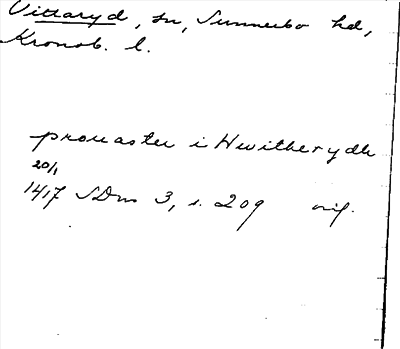 Vittaryd, sn, Sunnerbo hd,
Kronob. l.
prouasten i Hwitherydh
20/1
1417 SDns 3, s. 209 orig.